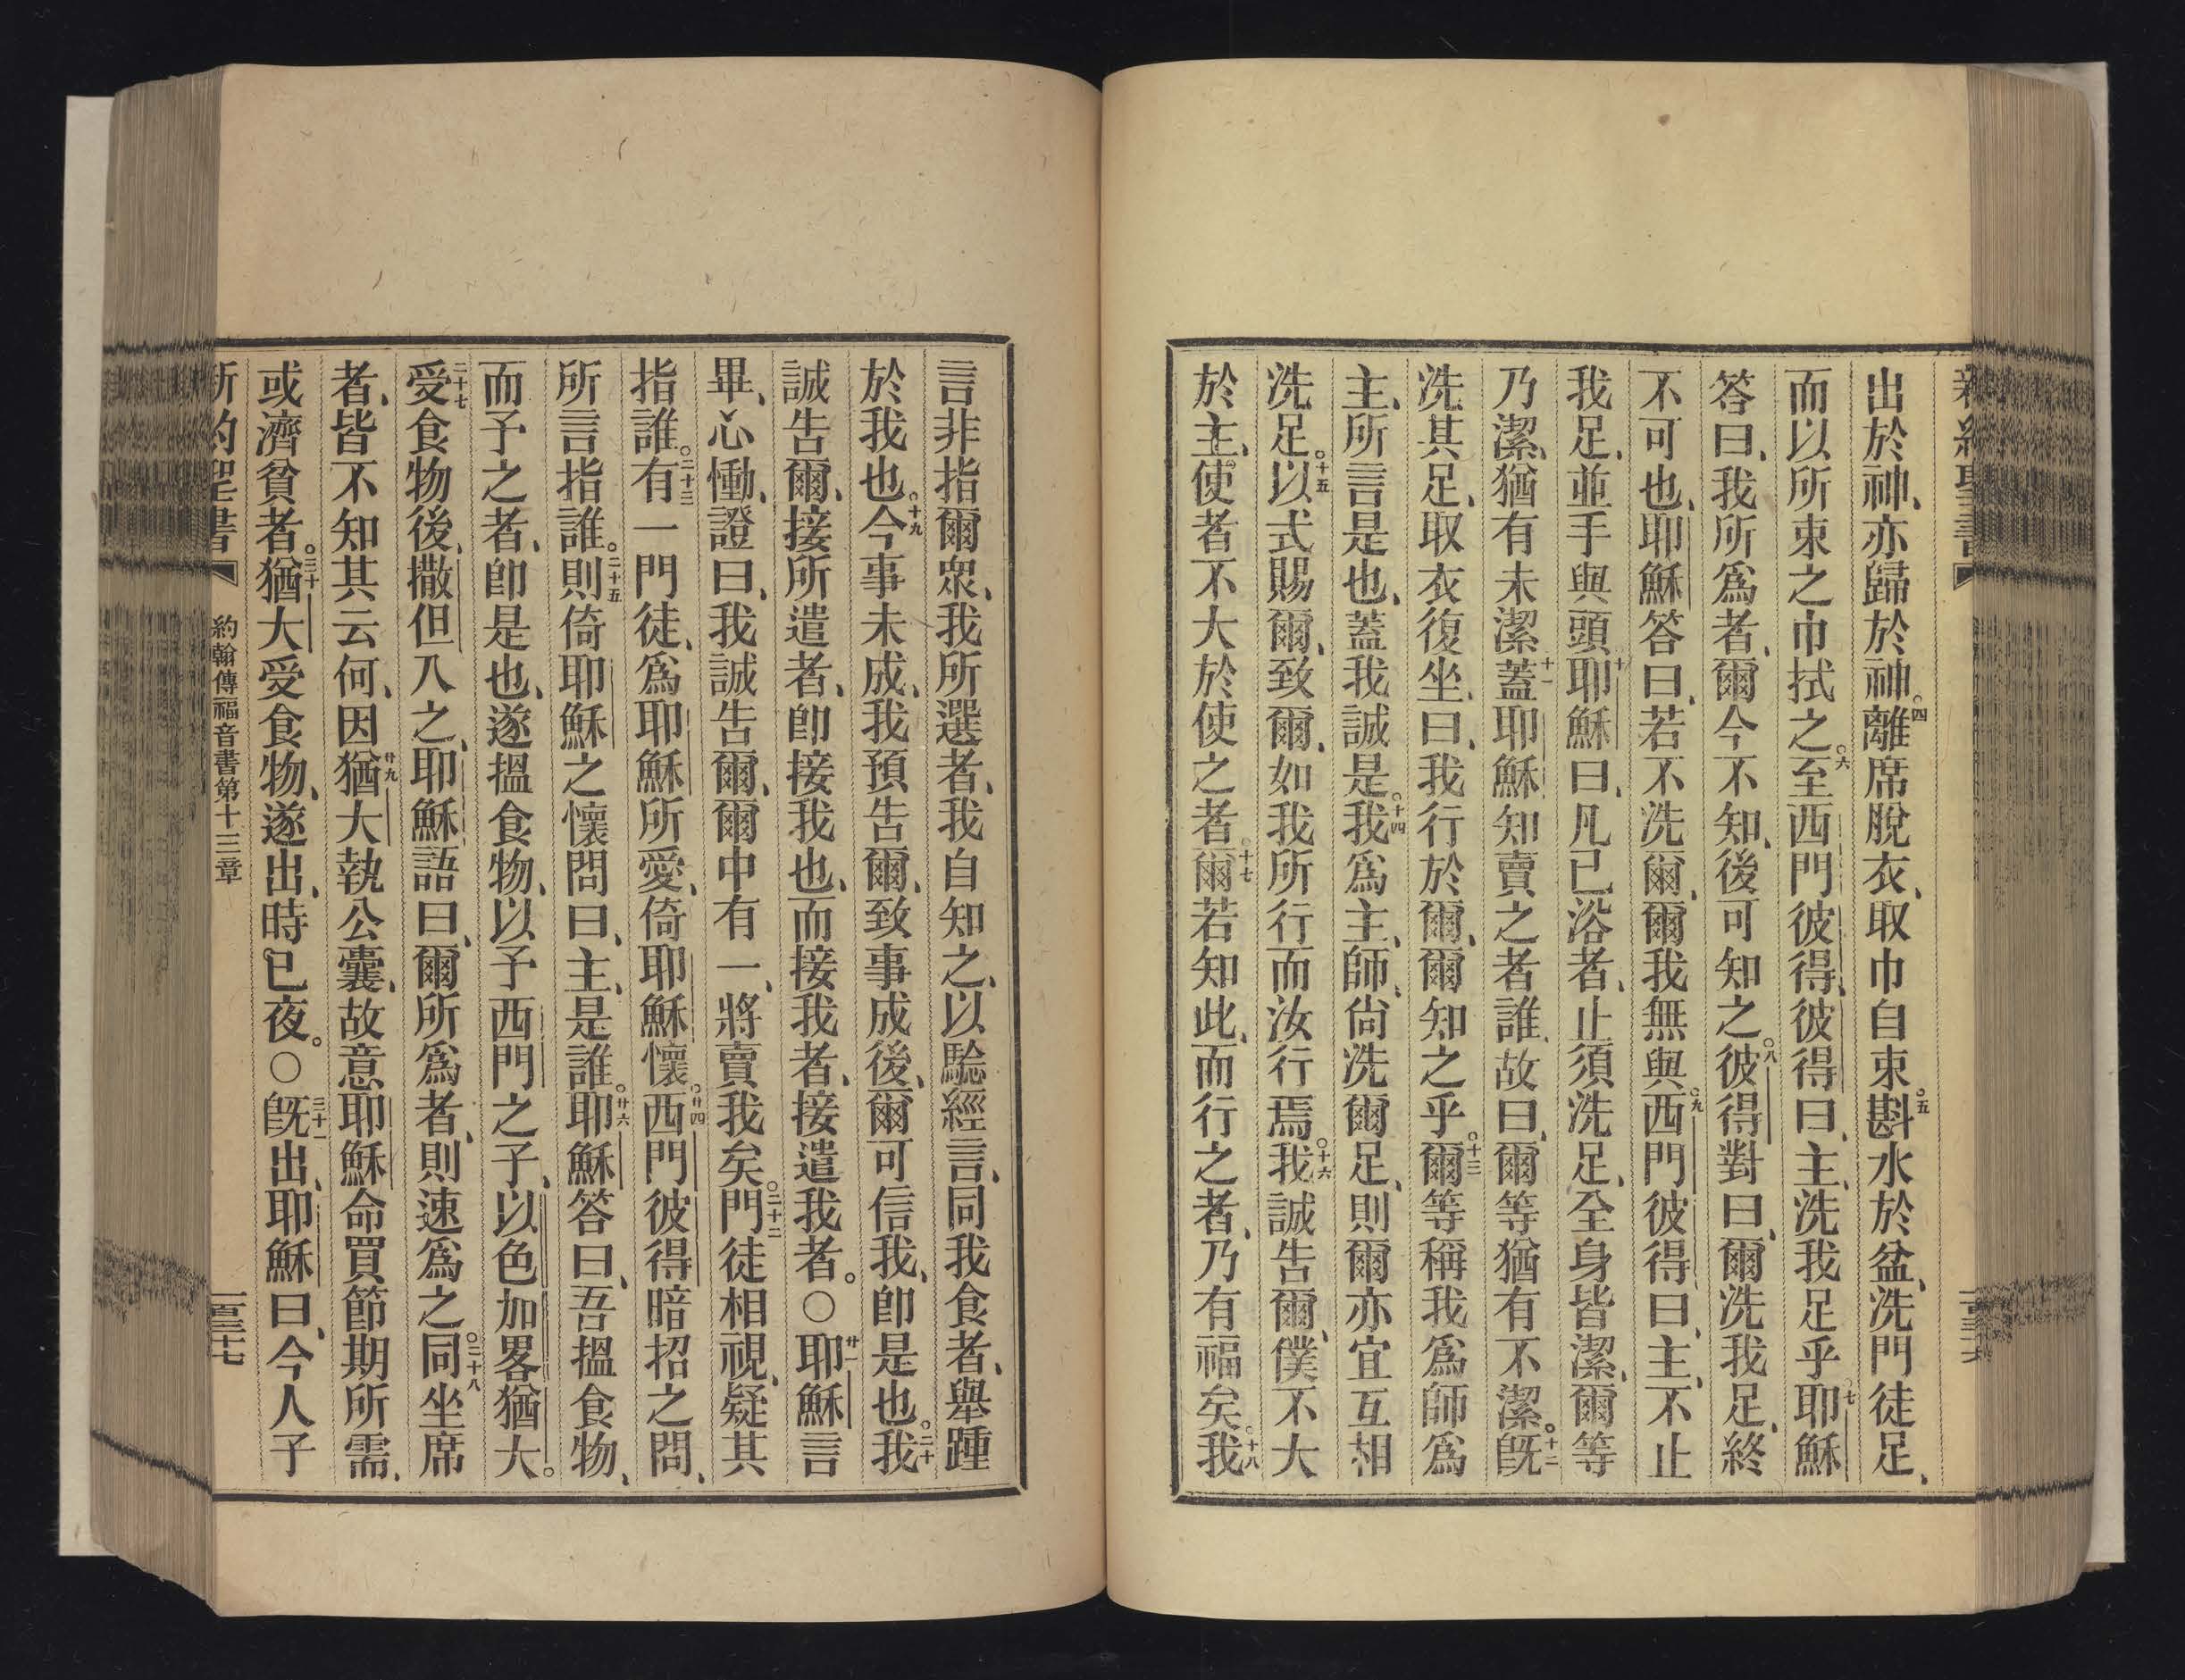 新約聖書
出於神、亦歸於神。四離席脫衣、取巾自束。五斟水於盆、洗門徒足、
而以所束之巾拭之。六至西門彼得、彼得曰、主、洗我足乎。七耶穌
答曰、我所爲者、爾今不知、後可知之。八彼得對曰、爾洗我足、終
不可也、耶穌答曰、若不洗爾、爾我無與。九西門彼得曰、主、不止
我足、並手與頭。十耶穌曰、凡已浴者、止須洗足、全身皆潔、爾等
乃潔、猶有未潔。十一蓋耶穌知賣之者誰、故曰、爾等猶有不潔。十二旣
洗其足、取衣復坐、曰、我行於爾、爾知之乎。十三爾等稱我爲師爲
主、所言是也、蓋我誠是。十四我爲主、師、尙洗爾足、則爾亦宜互相
洗足。十五以式賜爾、致爾、如我所行而汝行焉。十六我誠告爾、僕不大
於主、使者不大於使之者。十七爾若知此、而行之者、乃有福矣。十八我
言非指爾衆、我所選者、我自知之、以騐經言、同我食者、舉踵
於我也。十九今事未成、我預告爾、致事成後、爾可信我、卽是也。二十我
誠告爾、接所遣者、卽接我也、而接我者、接遣我者。〇廿一耶穌言
畢、心慟、證曰、我誠告爾、爾中有一、將賣我矣。二十二門徒相視、疑其
指誰。二十三有一門徒、爲耶穌所愛、倚耶穌懷。廿四西門彼得暗招之問、
所言指誰。二十五則倚耶穌之懷問曰、主、是誰。廿六耶穌答曰、吾搵食物、
而予之者、卽是也、遂搵食物、以予西門之子、以色加畧猶大。
二十七受食物後、撒但入之、耶穌語曰、爾所爲者、則速爲之。二十八同坐席
者、皆不知其云何、廿九因猶大執公囊、故意耶穌命買節期所需、
或濟貧者。三十猶大受食物、遂出、時已夜。〇三十一旣出、耶穌曰、今人子
新約聖書 約翰傳福音書第十三章 一百三十七